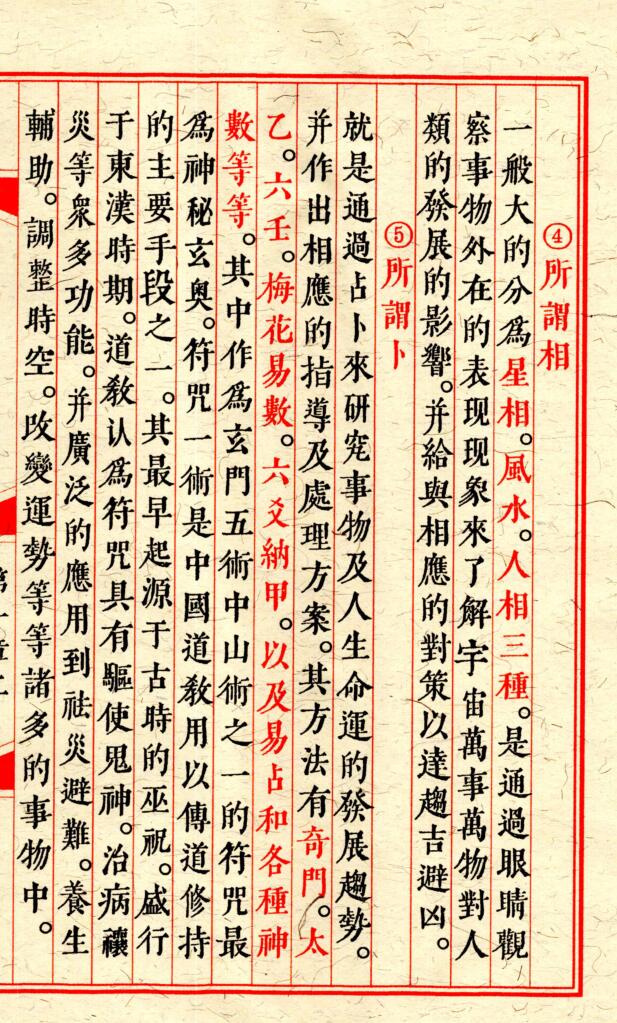 ④所謂相
一般大的分爲星相。風水。人相三種。是通過眼睛觀
察事物外在的表现现象來了解宇宙萬事萬物對人
類的發展的影響。并給與相應的對策以達趨吉避凶。
⑤所謂卜
就是通過占卜來研究事物及人生命運的發展趨勢。
并作出相應的指導及處理方案。其方法有奇門。太
乙。六壬。梅花易數。六爻納甲。以及易占和各種神
數等等。其中作爲玄門五術中山術之一的符咒最
爲神秘玄奥。符咒一術是中國道教用以傳道修持
的主要手段之一。其最早起源于古時的巫祝。盛行
于東漢時期。道教认爲符咒具有驅使鬼神。治病禳
災等衆多功能。并廣泛的應用到祛災避難。養生
輔助。調整時空。改變運勢等等諸多的事物中。